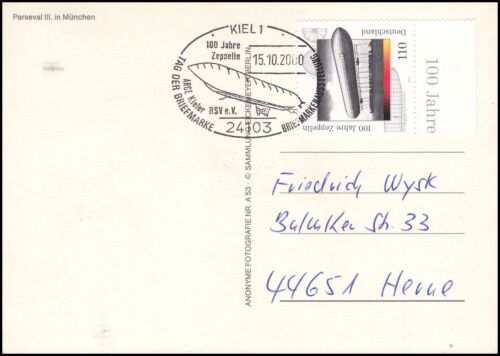 Parseval III. in München
KIEL 1
100 Jahre
Zeppelin
15.10.2000
TAG DER BRIEFMARKE
ARGE Kieler
BSV e.V.
24103
Deutschland
110
100 Jahre Zeppelin
100 Jahre
ANONYME FOTOGRAFIE NR. A 53 · © SAMMLUNG BERLIN
Friedrich Wysk
Str. 33
44651 Herne